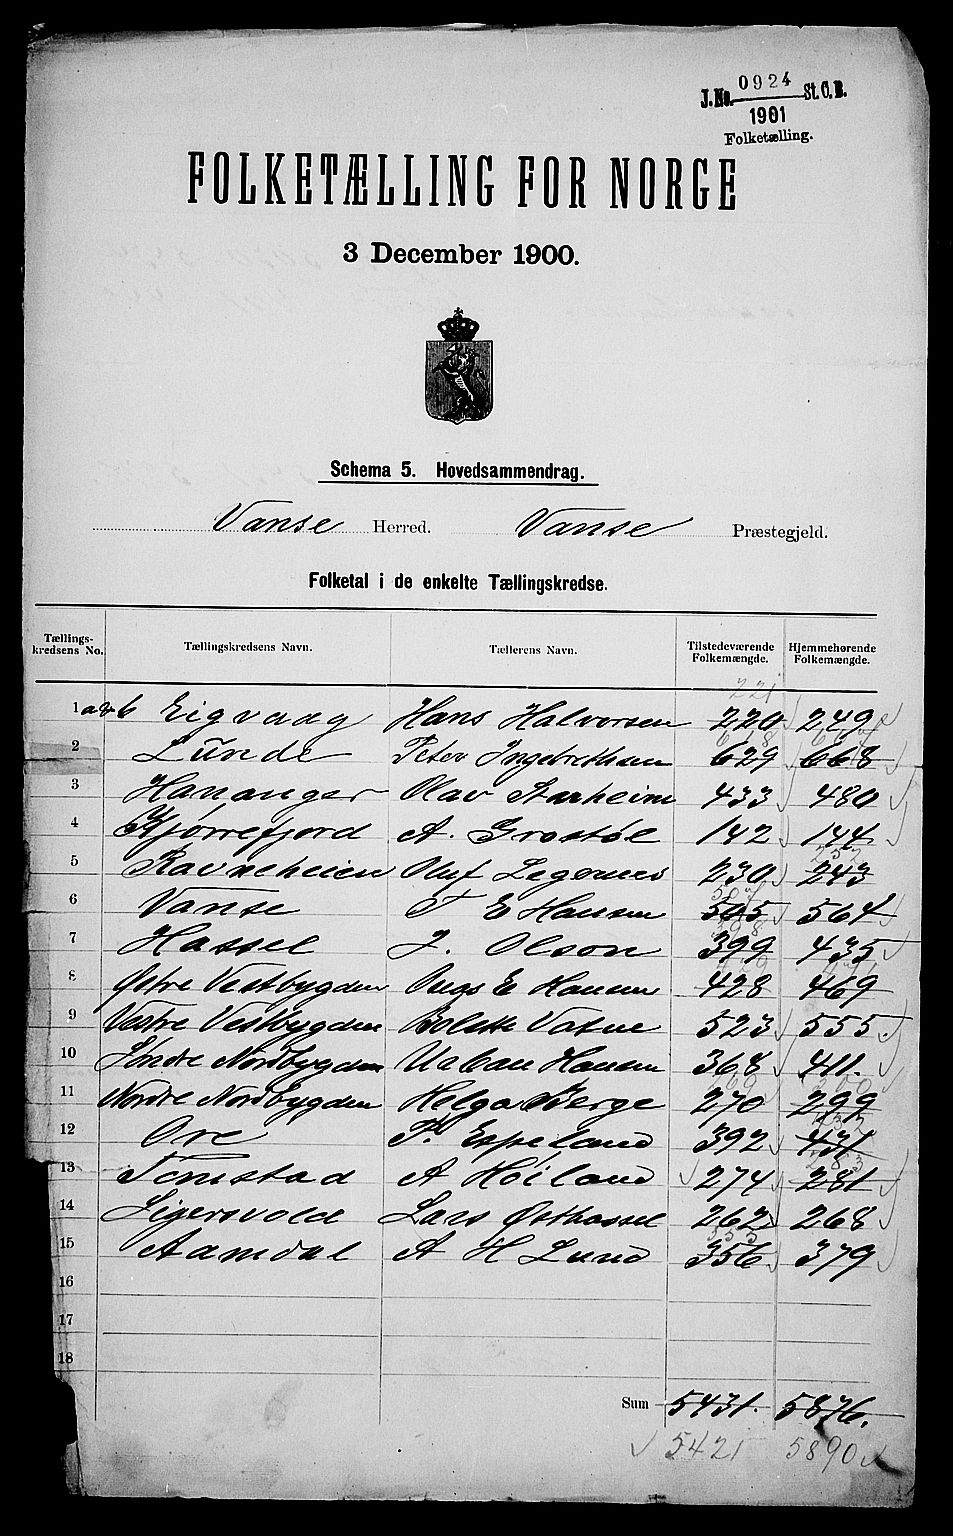 J.No. 0924 St.C.B.
1901
Folketælling.
FOLKETÆLLING FOR NORGE
3 December 1900.
Schema 5. Hovedsammendrag.
Vanse Herred. Vanse Præstegjeld.
Folketal i de enkelte Tællingskredse.
Tællings-kredsens No. Tællingskredsens Navn. Tællerens Navn. Tilstedeværende Folkemængde. Hjemmehørende Folkemængde.
221
1 a & b Eigvaag Hans Halvorsen 220 249
2 Lunde Peter Ingebrethsen 629 668
3 Hananger Olav Starheim 433 480
4 Kjørrefjord A. Grostøl 142 144
252
5 Ravneheien Oluf Legernes 230 243
504
6 Vanse T E Hansen 505 564
398
7 Hassel J. Olson 399 435
8 Østre Vestbygden Augs E Hansen 428 469
9 Vestre Vestbygden Bolette Vatne 523 555
10 Søndre Nordbygden Urban Hansen 368 411.
269 300
11 Nordre Nordbygden Helga Berge 270 299
432
12 Ore P. Espeland 392 431
283
13 Tomstad A Høiland 274 281
14 Ligersvold Lars Østhassel 262 268
353
15 Aamdal A H Lund 356 379
16
17
18
Sum 5431. 5876.
5421 5890